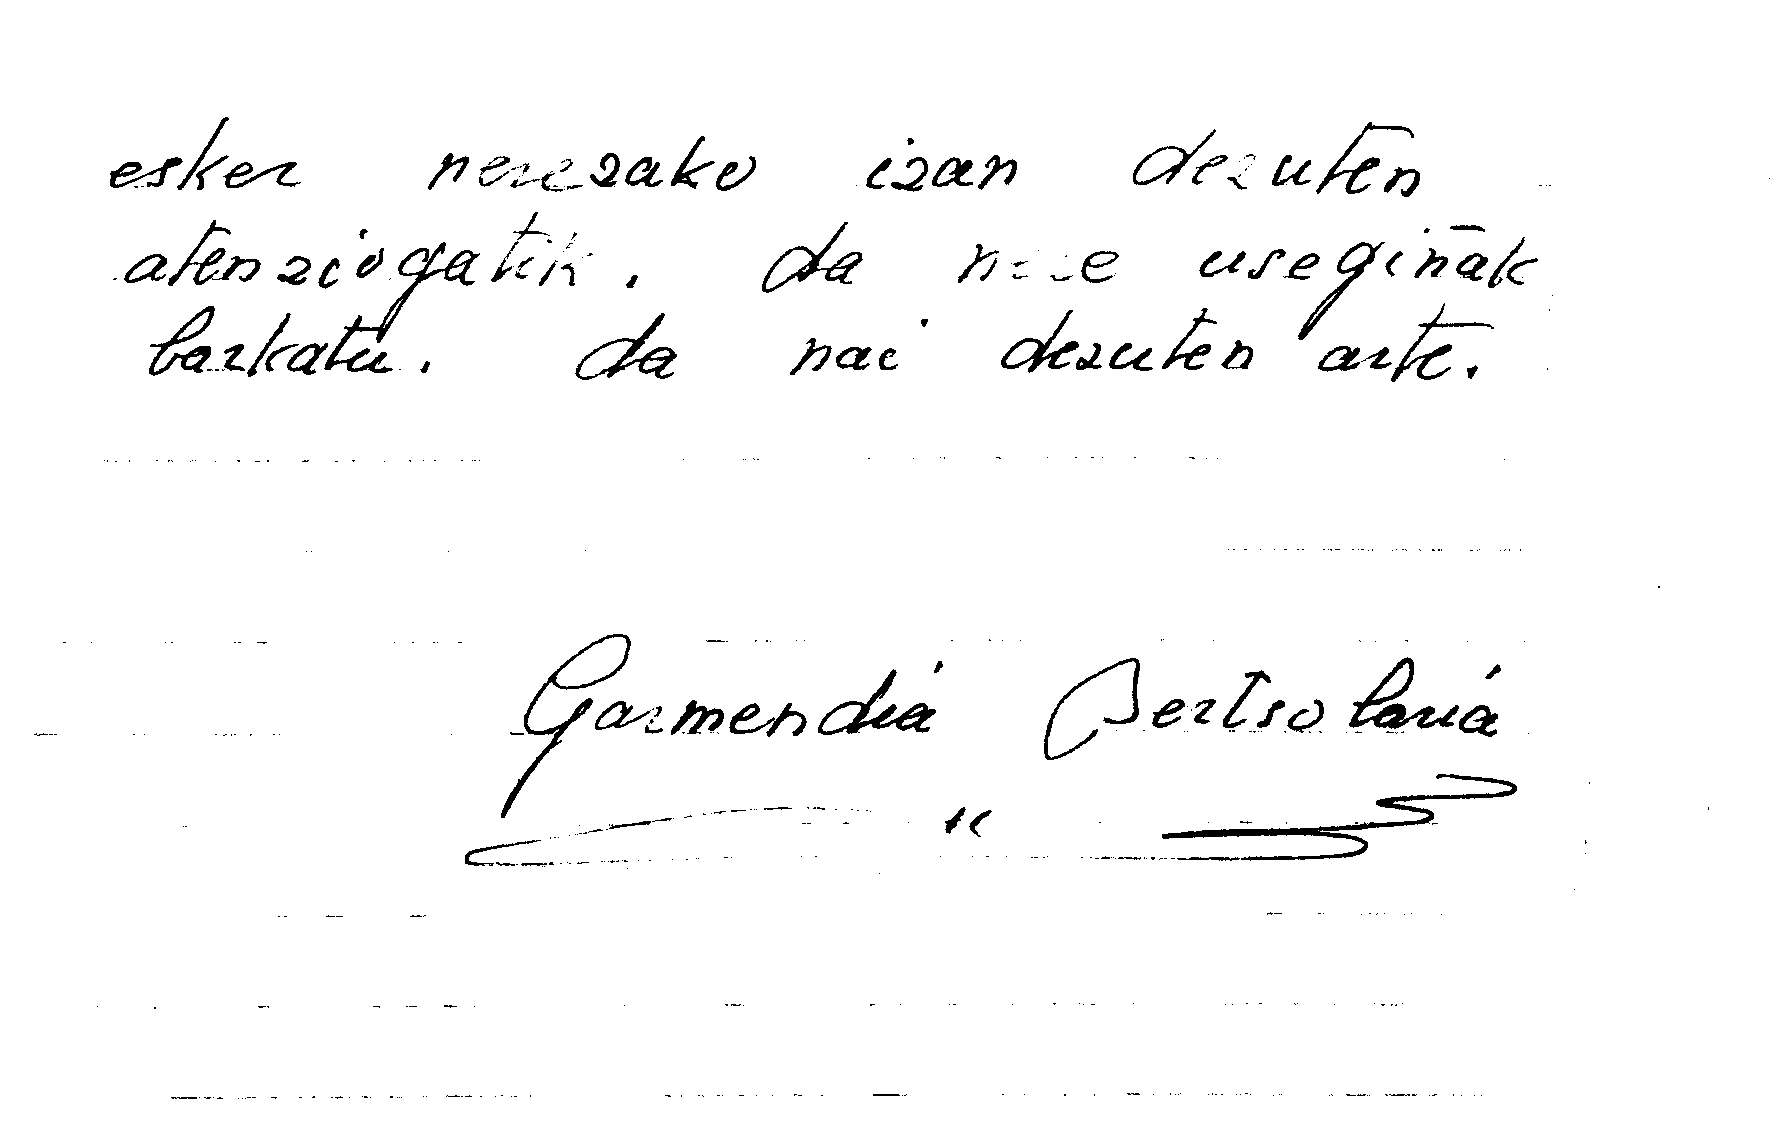 esker nerezako izan dezuten
atenziogatik. da nere usegiñak
barkatu. da nai dezuten arte.
Garmendia Bertsolaria
"